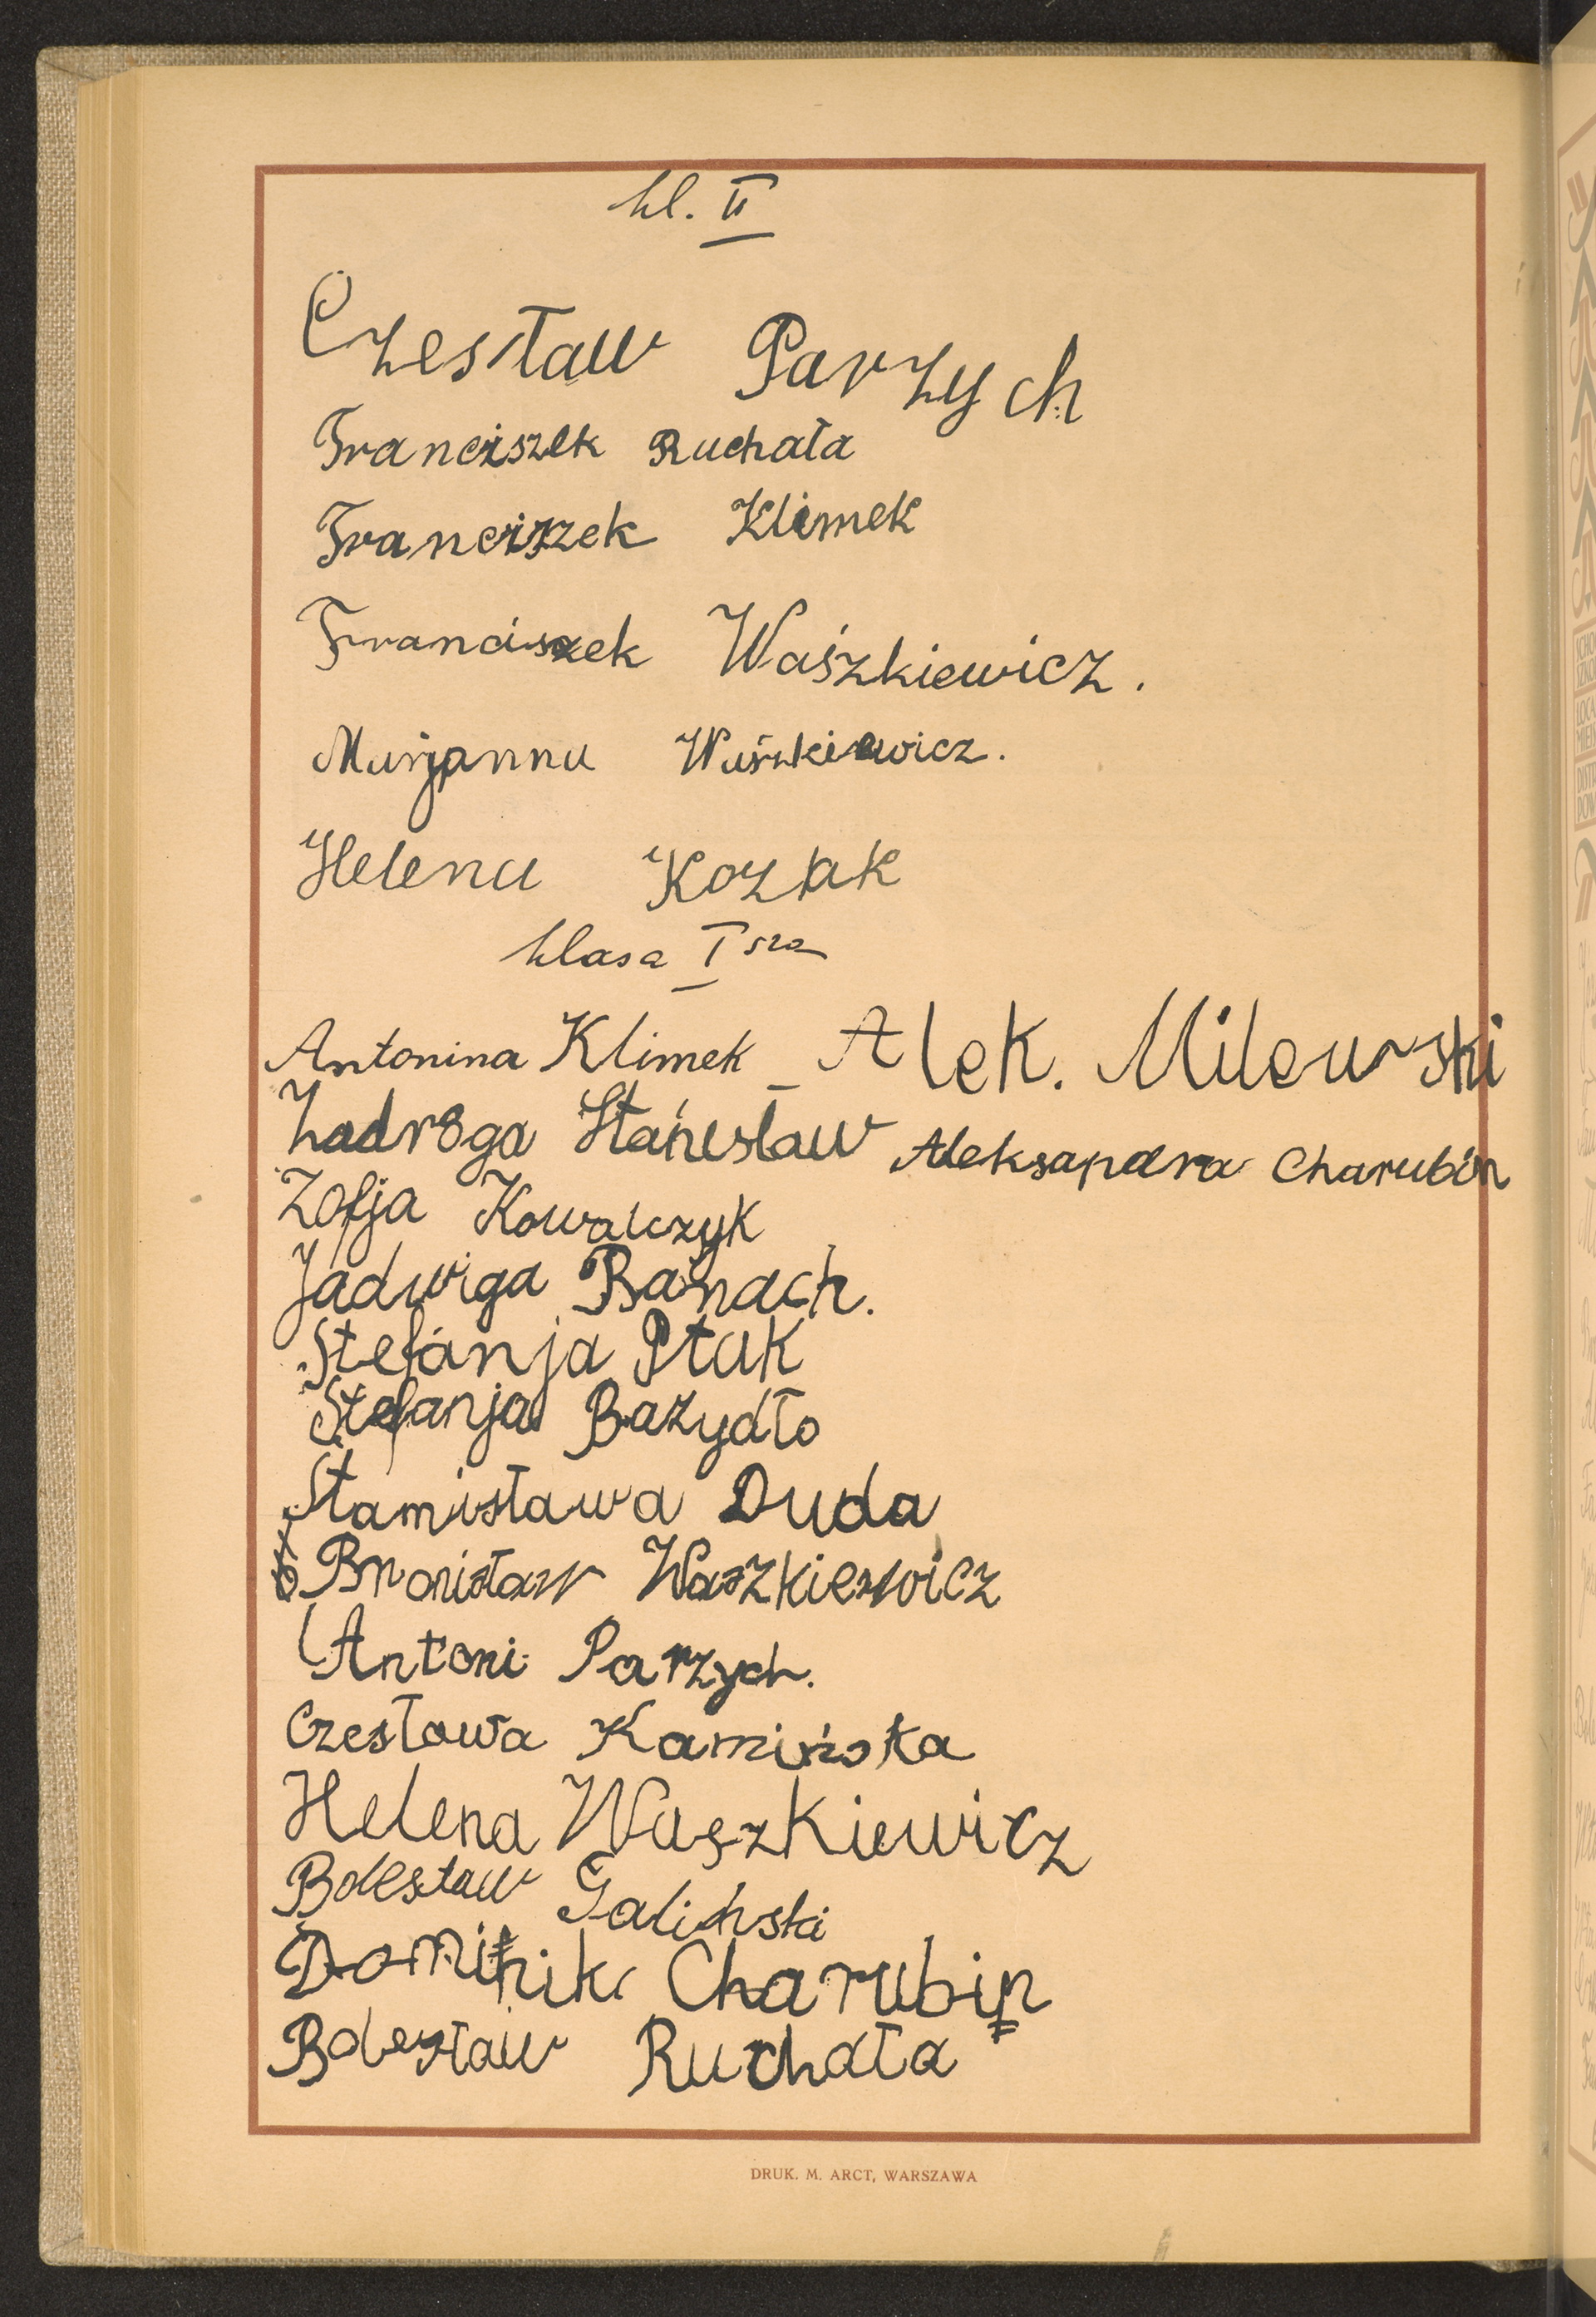 kl. II
Czesław Parzych
Franciszek Ruchała
Franciszek Klimek
Franciszek Waśzkiewicz.
Marjanna Waśzkiewicz.
Helena Kozłak
klasa I sza
Antonina Klimek – Alek. Milewski
Zadroga Stanisław Aleksandra Charubin
Zofja Kowalczyk
Jadwiga Banach.
Stefanja Ptak
Stefanja Bazydło
Stamisława Duda
Bronisław Waszkiewicz
Antoni Parzych.
Czesława Kamińska
Helena Waszkiewicz
Bolesław Galiński
Dominik Charubin
Bolesław Ruchała
DRUK. M. ARCT, WARSZAWA